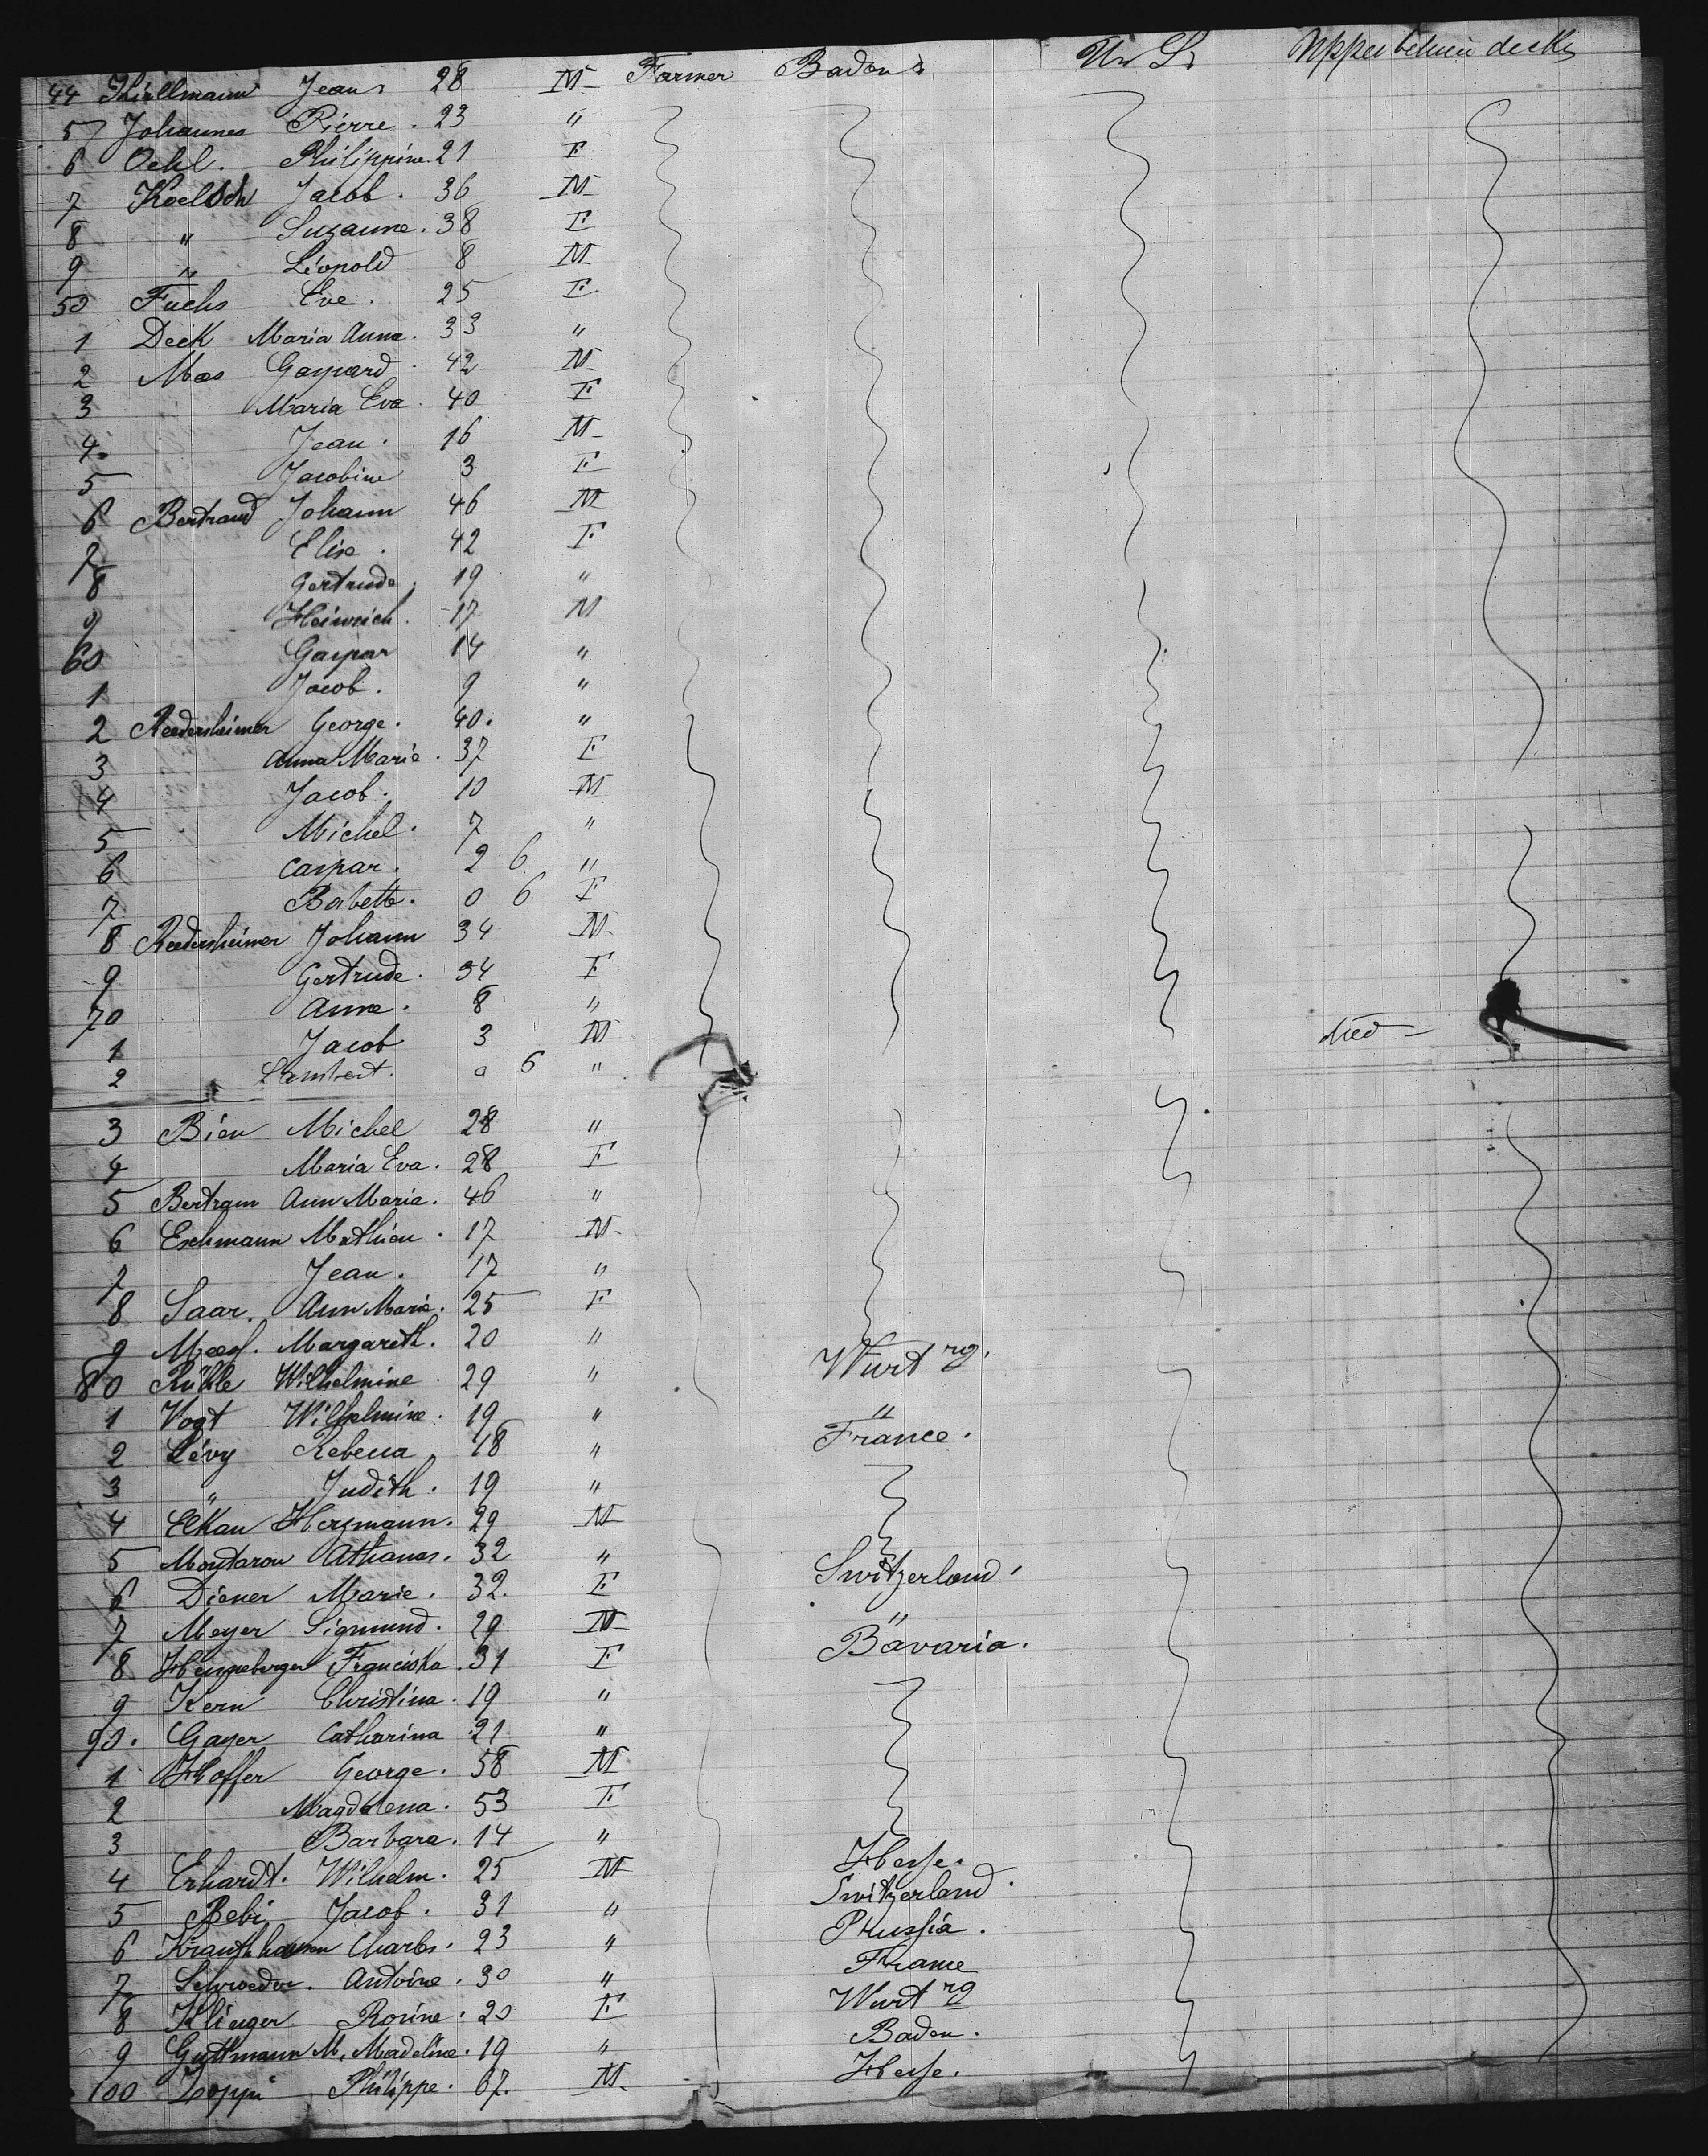 44 Thiellmann Jean 28 M Farmer Baden U. S. Upper between decks
5 Johannes Pierre. 23 "
6 Oehl. Philippine. 21 F
7 Koelsch Jacob. 36 M
8 " Suzanne. 38 F
9 " Léopold 8 M
50 Fuchs Eve. 25 F
1 Deck Maria Anna. 33 "
2 Maes Gaspard. 42 M
3 Maria Eva. 40 F
4. Jean. 16 M
5 Jacobine 3 F
6 Bertrand Johann 46 M
7 Elise. 42 F
8 Gertrude. 19 "
9 Heinrich. 17 M
60 Gaspar 14 "
1 Jacob. 9 "
2 Reedersheimer George. 40. "
3 Anna Marie. 37 F
4 Jacob. 10 M
5 Michel. 7 "
6 Caspar. 2 6 "
7 Babette. 0 6 F
8 Reedersheimer Johann 34 M
9 Gertrude. 34 F
70 Anne. 8 "
1 Jacob 3 M died
2 Lambert. 0 6 "
3 Bien Michel 28 "
4 Maria Eva. 28 F
5 Bertram Ann Maria. 46 "
6 Eschmann Mathieu. 17 M
7 Jean. 17 "
8 Saar. Ann Marie. 25 F
9 Maes. Margareth. 20 "
80 Rühle Wilhelmine 29 " Wurt rg.
1 Vogt Wilhelmine. 19 " "
2 Lévy Rebecca 18 " France.
3 " Judith. 19 "
4 Elkan Hermann. 29 M
5 Montaron Athanas. 32 "
6 Diener Marie. 32. F Switzerland.
7 Meyer Sigmund. 29 M "
8 Henneberger Franciska. 31 F Bavaria.
9 Kern Christina. 19 "
90. Gayer Catharina 21 "
1 Hoffer George. 58 M
2 Magdalena. 53 F
3 Barbara. 14 "
4 Erhardt. Wilhelm. 25 M Hesse.
5 Bebi Jacob. 31 " Switzerland.
6 Krauthausen Charles. 23 " Prussia.
7 Schroeder. Antoine. 30 " France
8 Klinger Rosine. 20 F Wurt rg
9 Guttmann M. Madeline. 19 " Baden.
100 Zoppi Philippe. 67. M. Hesse.